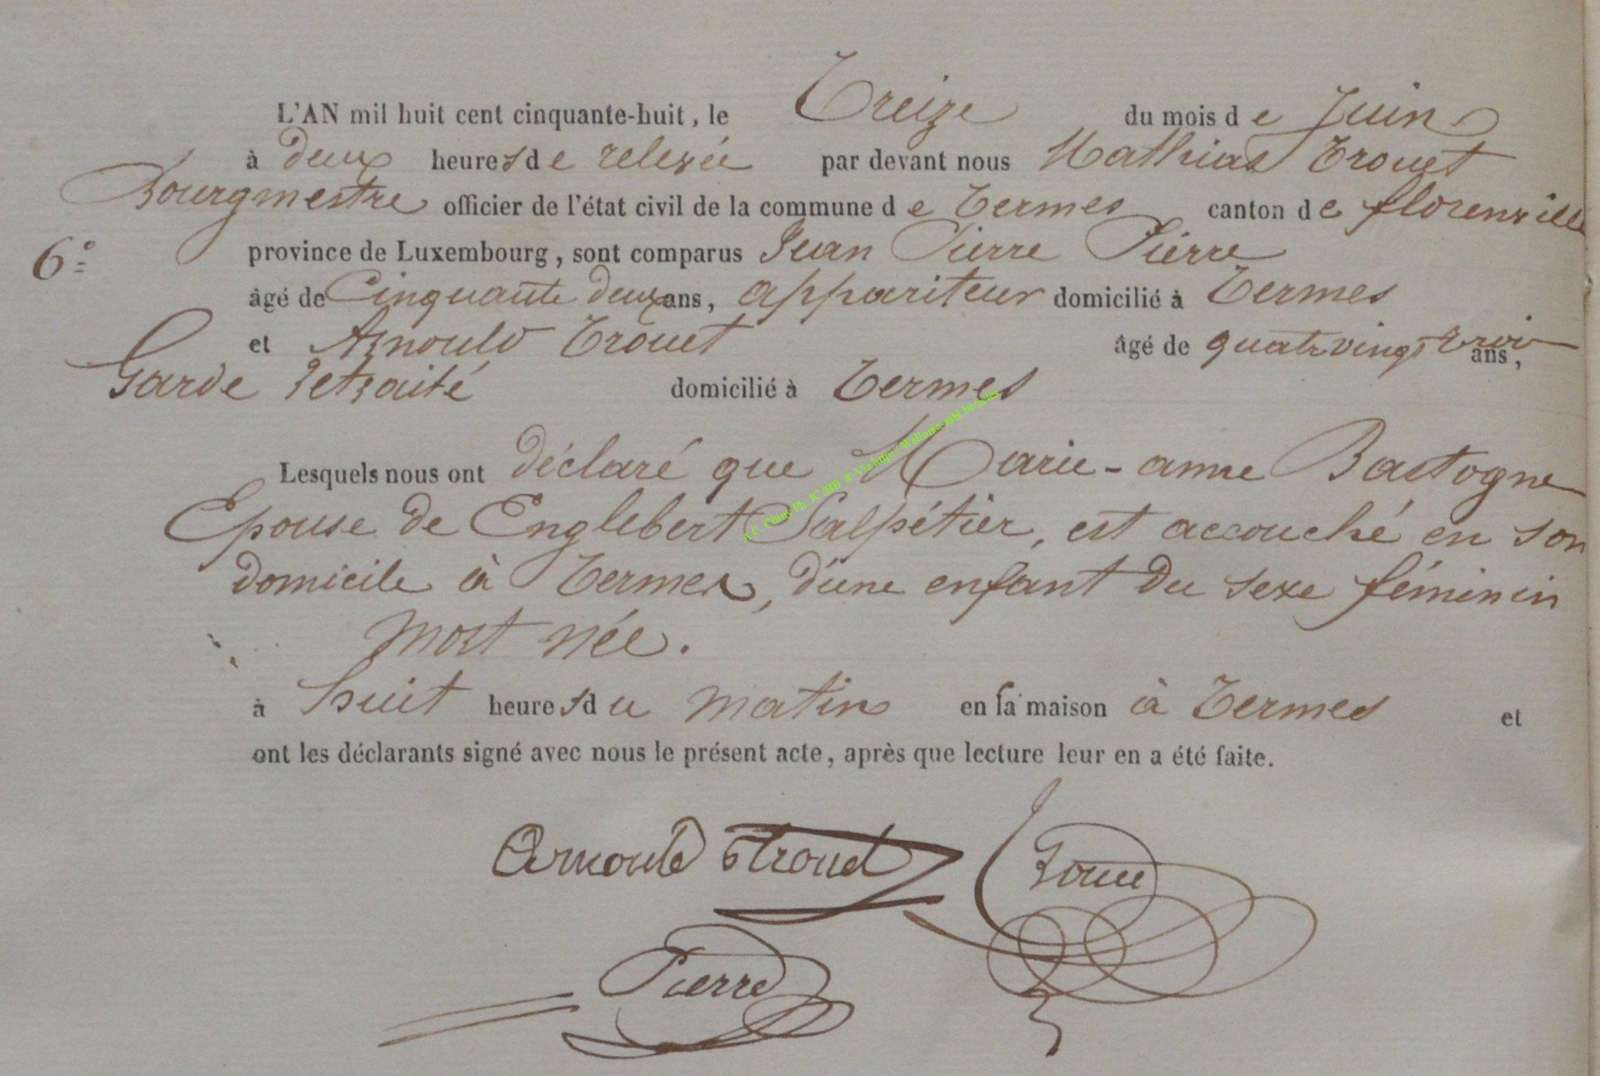 L'AN mil huit cent cinquante-huit, le Treize du mois de Juin
à deux heures de relevée par devant nous Mathias Trouet
Bourgmestre officier de l'état civil de la commune de Termes canton de florenville
6°
province de Luxembourg, sont comparus Jean Pierre Pierre
âgé de Cinquante deux ans, appariteur domicilié à Termes
et Arnould Trouet âgé de quatrevingt trois ans,
Garde retraité domicilié à Termes
Lesquels nous ont déclaré que Marie-anne Bastogne
Epouse de Englebert Salpétier, est accouché en son
domicile à Termes, d'une enfant du sexe féminin
mort née.
à huit heures du matin en sa maison à Termes et
ont les déclarants signé avec nous le présent acte, après que lecture leur en a été faite.
Pierre